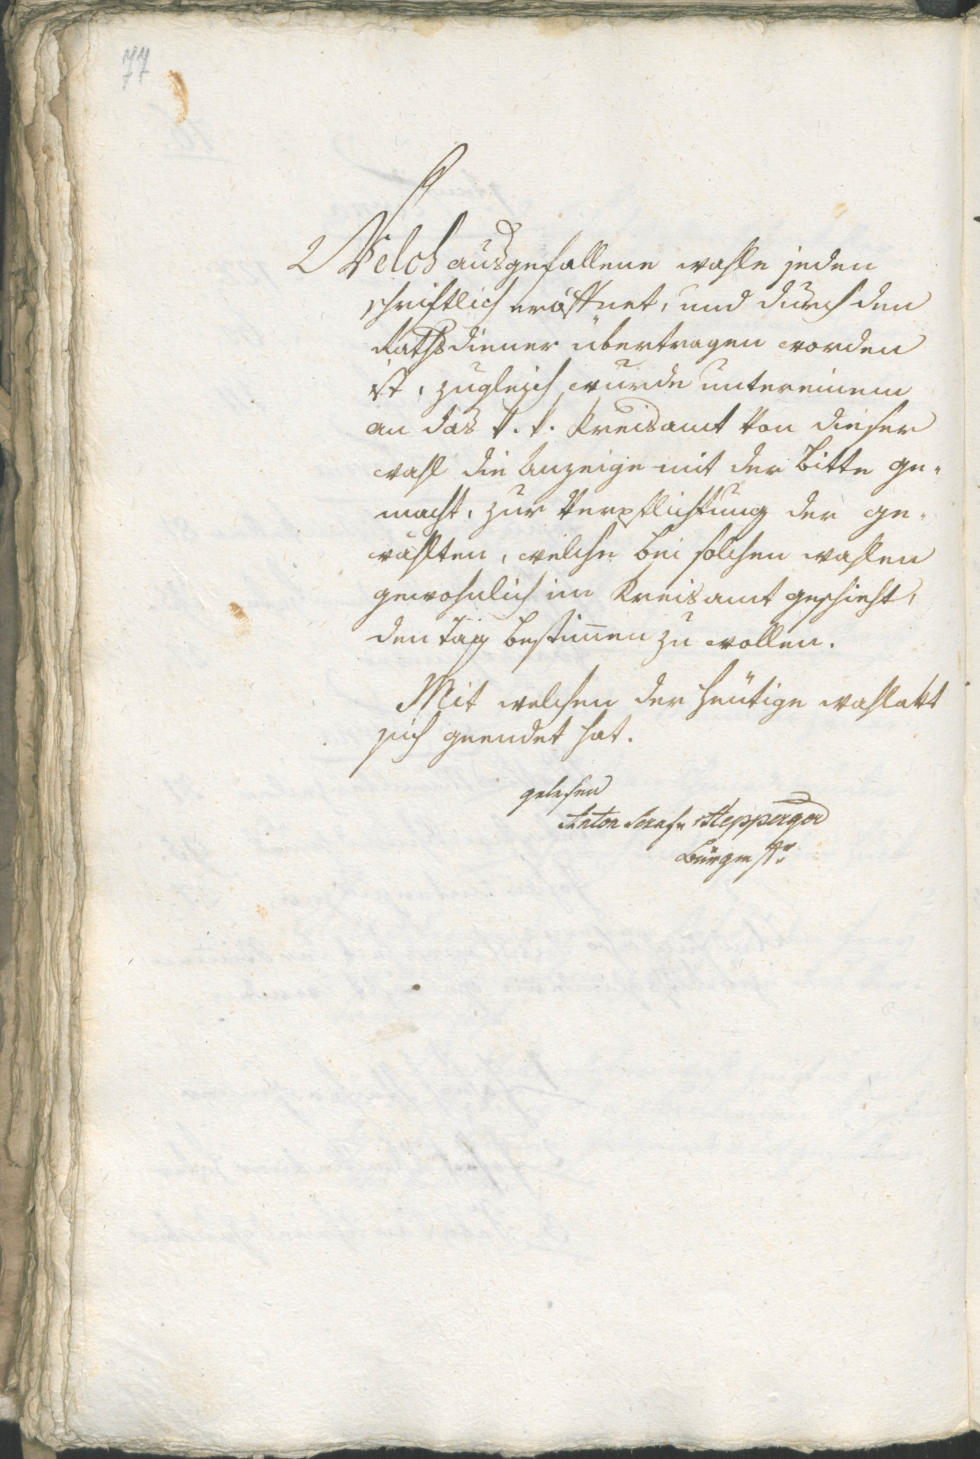 77
Welch ausgefallene wahle jeden
schriftlich eröffnet, und durch den
Rathsdiener übertragen worden
ist, zugleich wurde untereinem
an das k. k. Kreisamt von dieser
wahl die Anzeige mit der Bitte ge-
macht, zur Verpflichtung der ge-
wählten, welche bei solchen wahlen
gewohnlich im Kreisamt geschieht,
den Tag bestimen zu wollen.
Mit welchen der heutige wahlakt
sich geendet hat.
gelesen
Anton Hepperger
Bürgmstr